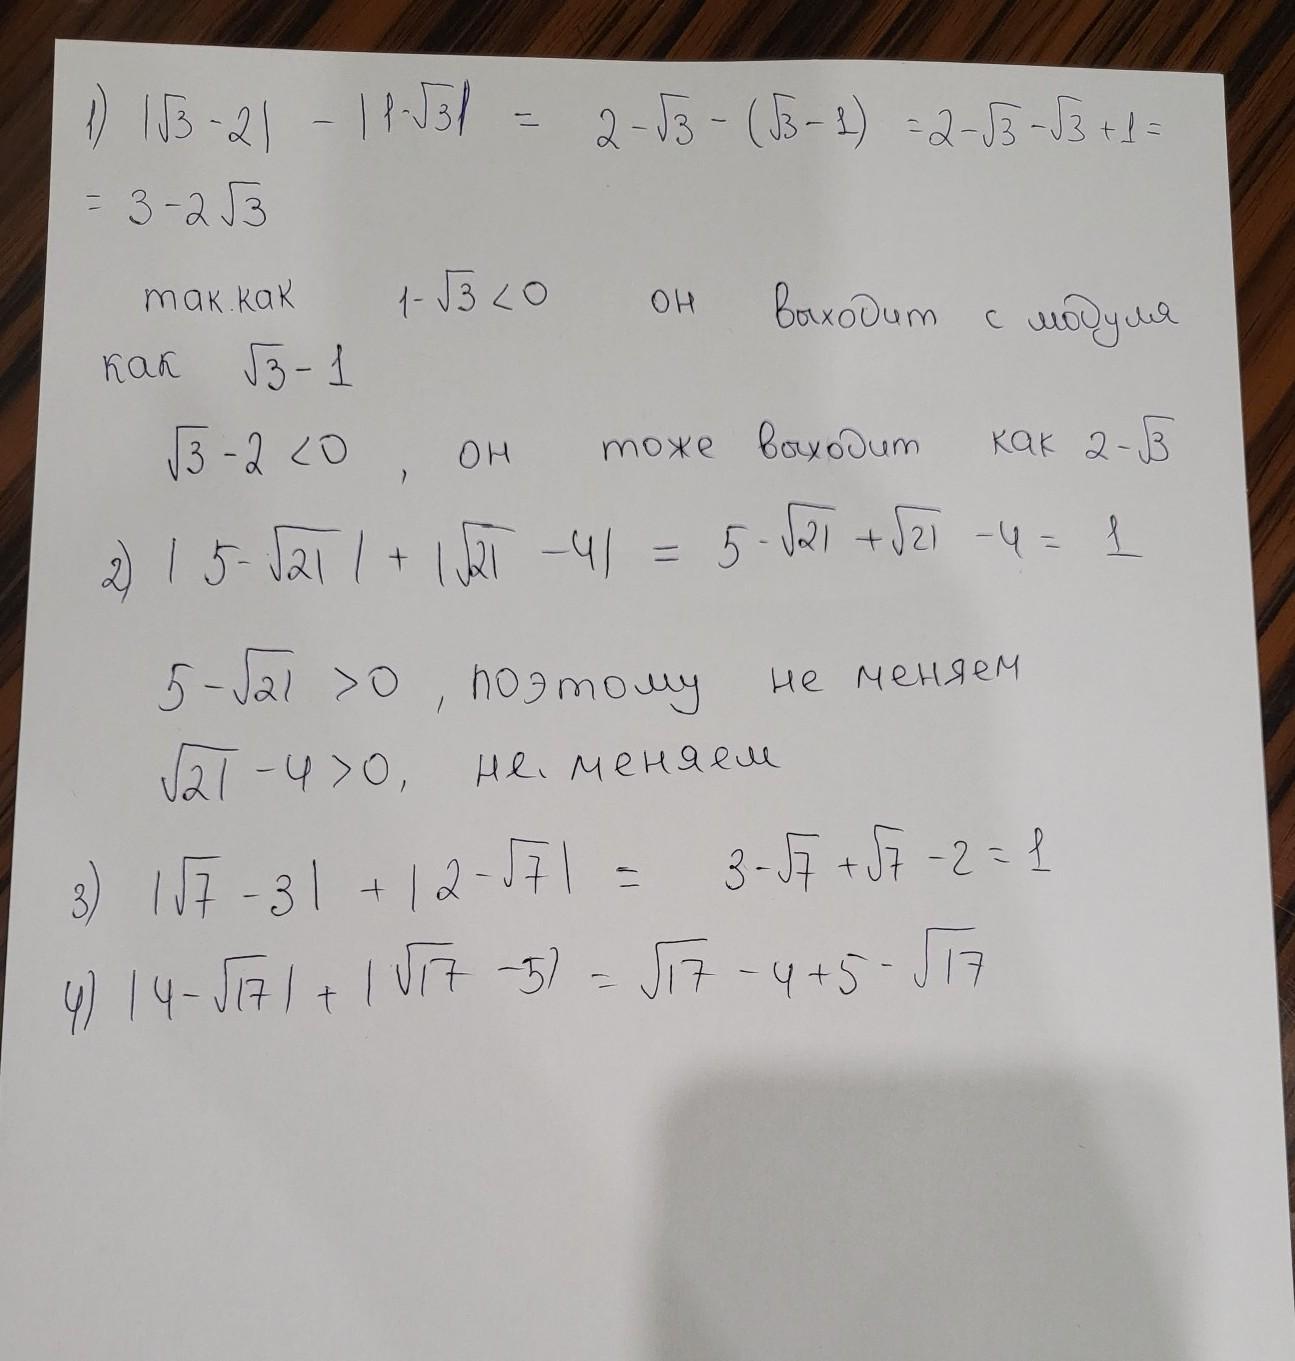 1) |√3 - 2| - |1-√3| = 2-√3 - (√3-1) = 2-√3-√3+1 =
= 3-2√3
так.как 1-√3<0 он выходит с модуля
как √3-1
√3-2<0, он тоже выходит как 2-√3
2) |5-√21| + |√21 -4| = 5-√21 +√21 -4= 1
5-√21 >0, поэтому не меняем
√21 -4>0, не. меняем
3) |√7 -3| + |2-√7| = 3-√7 +√7 -2=1
4) |4-√17| + |√17 -5| = √17 -4+5-√17